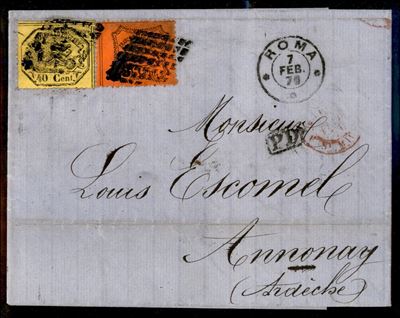 40 Cent.
ROMA
7
FEB.
70
Monsieur
P.D.
Louis Escomel
Annonay
(Ardèche)